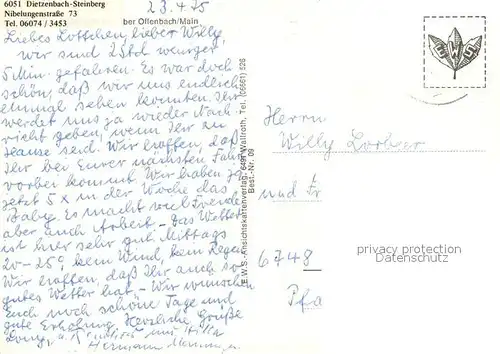 6051 Dietzenbach-Steinberg
Nibelungenstraße 73
Tel. 06074 / 3453
ber Offenbach/Main
23.4.75
Liebes Lottchen, lieber Willy,
wir sind 2 Std weniger
5 Min. gefahren. Es war doch
schön, daß wir uns endlich
einmal sehen konnten. Ihr
werdet uns ja wieder Nach-
richt geben, wenn Ihr zu
Hause seid. Wir hoffen, daß
Ihr bei Eurer nächsten Fahrt
vorbei kommt. Wir haben ja
jetzt 5 x in der Woche das
Baby. Es macht viel Freude
aber auch Arbeit - Das Wetter
ist hier sehr gut. Mittags
20-25°, kein Wind, kein Regen
Wir hoffen, daß Ihr auch so
gutes Wetter hat - Wir wünschen
Euch noch schöne Tage und
gute Erholung. Herzliche Grüße
Hermann
E.W.S.-Ansichtskartenverlag, 6491 Wallroth, Tel. (06661) 526
Best. Nr. 09
EWS
Herrn
Willy
und Fr
6748
Pfa
privacy protection
Datenschutz